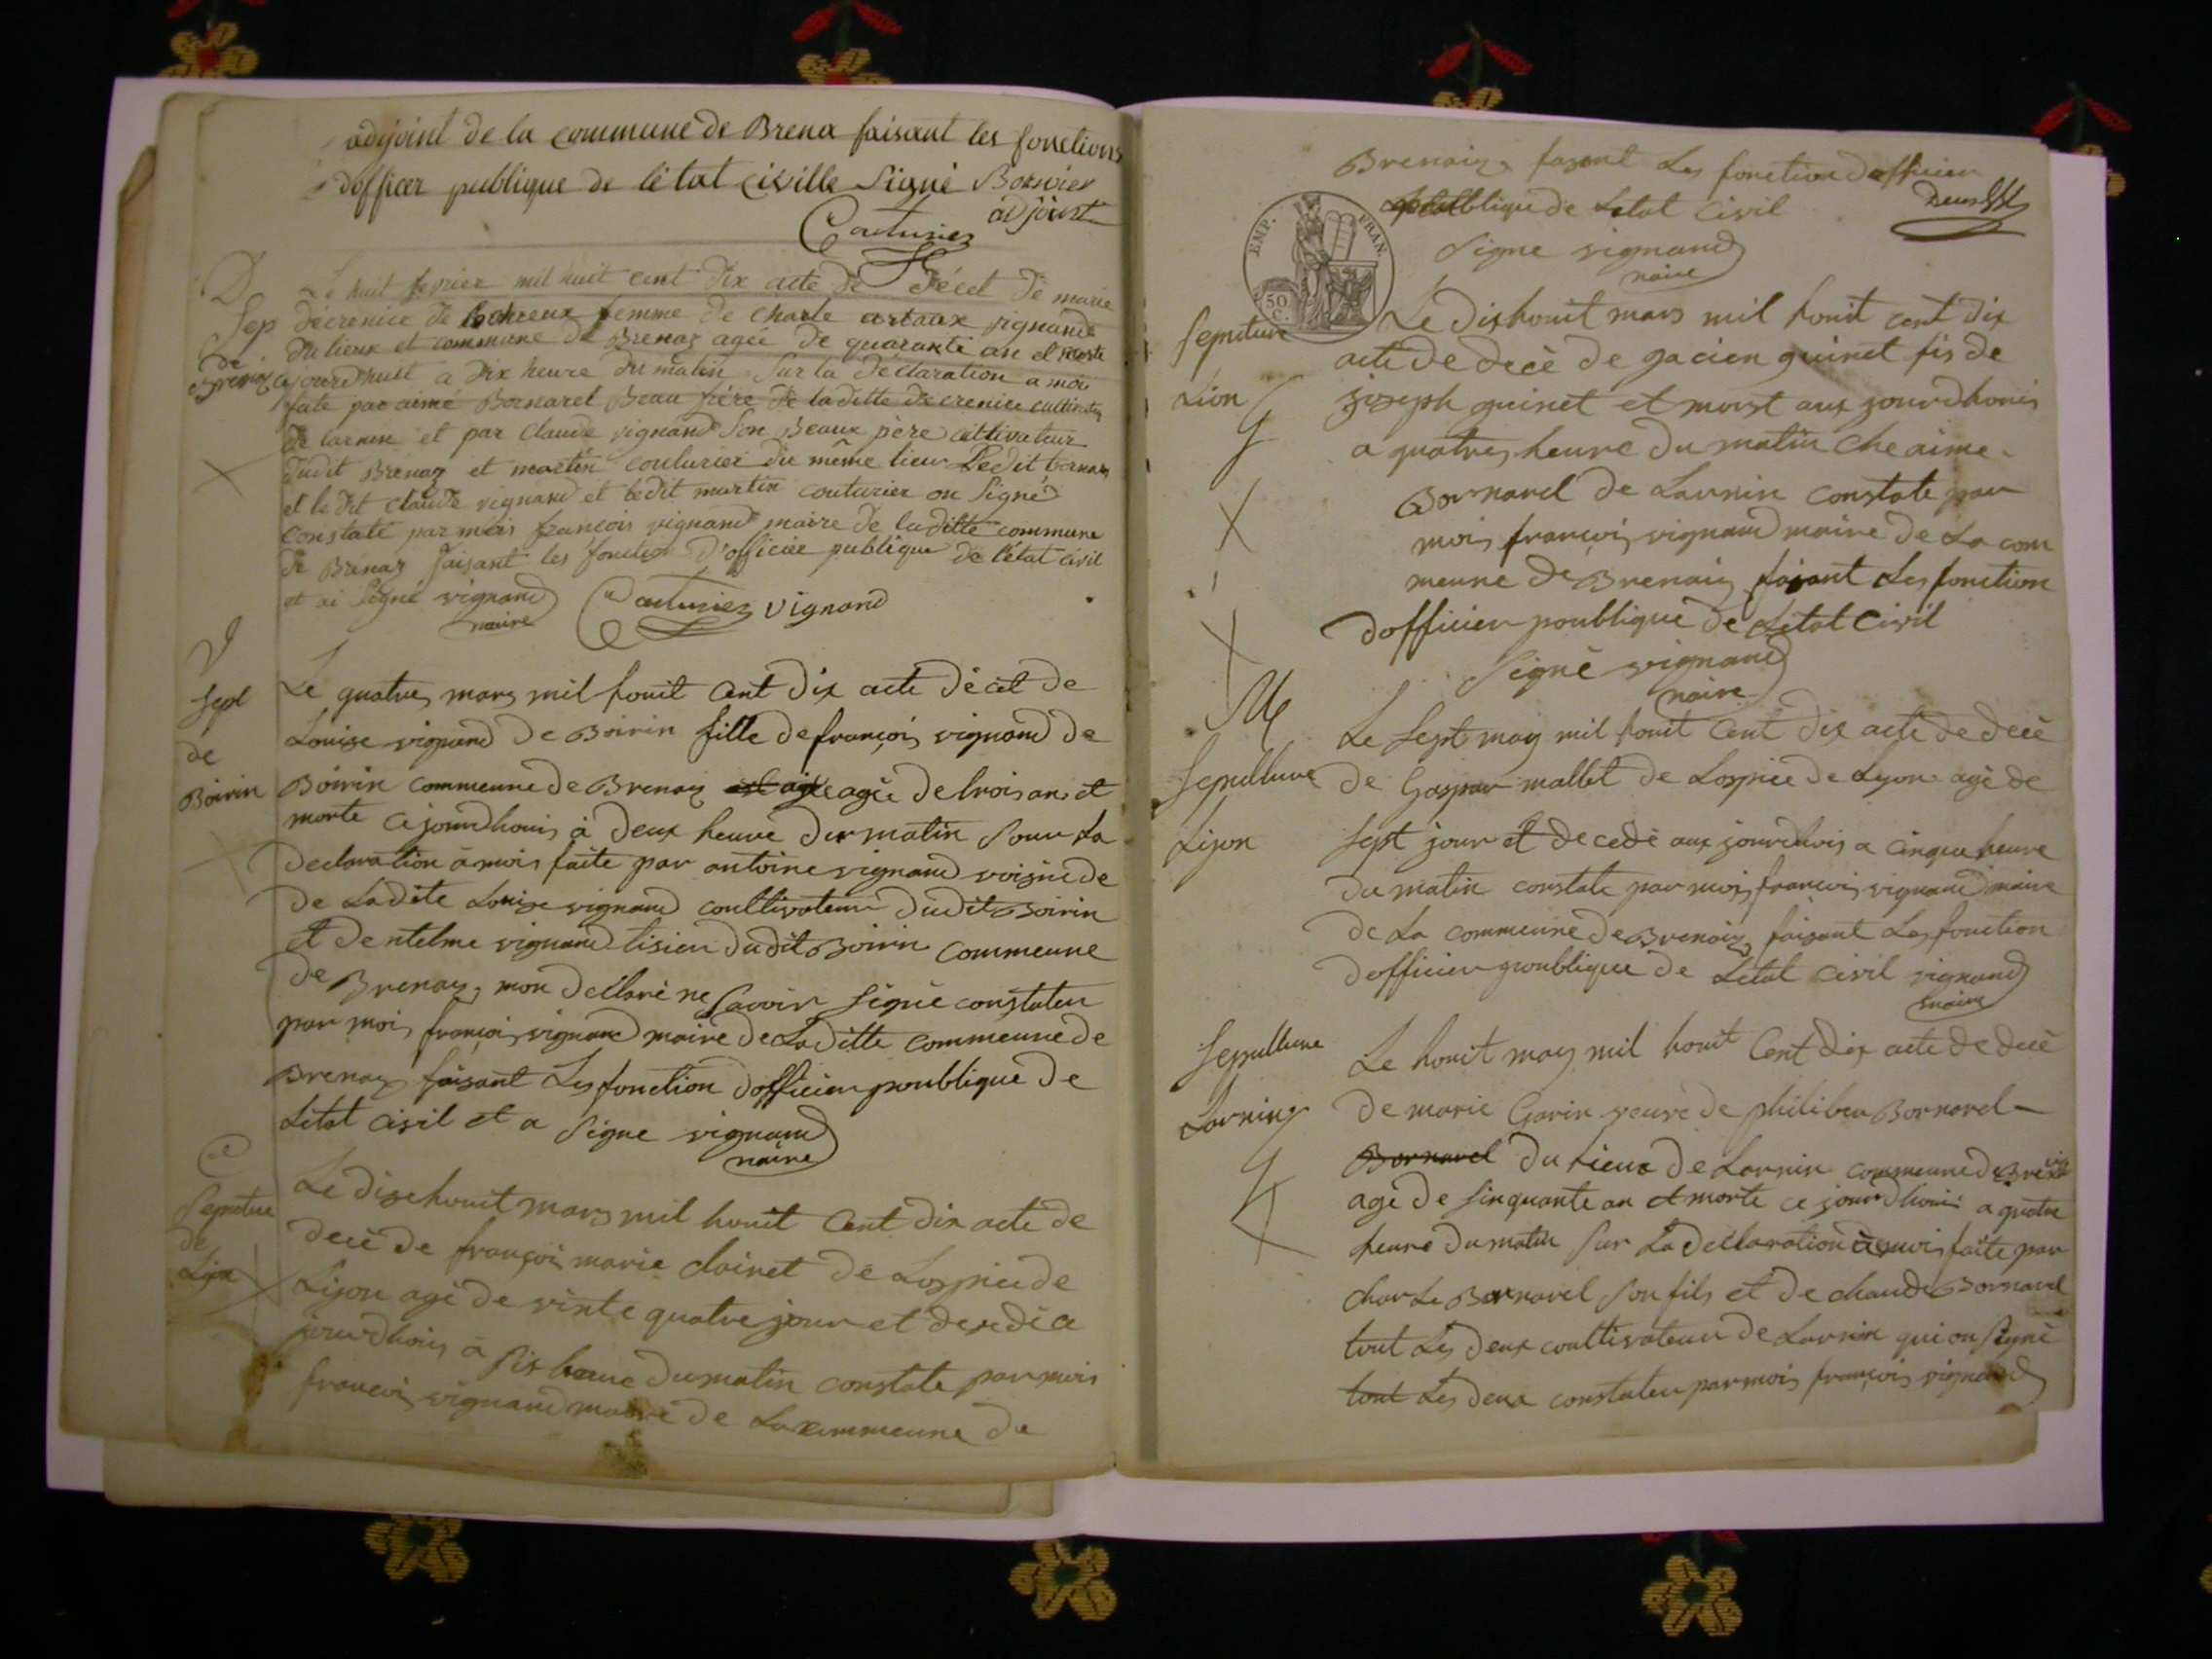 adjoint de la commune de Brena faisant les fonctions
dofficer publique de létat civille Signé Borvier
adjoint
Couturier
D
Sep
de
Brenaz
Le huit fevrier mil huit cent dix acte de décet de marie
décrenice de femme de Charle artaux vignand
du lieux et commune de Brenaz agée de quarante an et morte
cejourdhuit a dix heure du matin Sur la déclaration a moi
faite par aimé Bornarel Beau frère de laditte decrenice cultivateur
de larnin et par Claude vignand Son Beaux père cultivateur
dudit Brenaz et martin couturier du même lieu Ledit bornarel
et le dit Claude vignand et ledit martin couturier on Signé
constaté par mois francois vignand maire de laditte commune
de Brenaz faisant les fonction d'officier publique de létat civil
et ai Signé vignand
maire
Couturier vignand
V
Sepl
de
Boirin
Le quatre mars mil houit Cent dix acte décèt de
Louise vignand de Boirin fille de françois vignand de
Boirin commeune de Brenaz agée de trois ans et
morte cejourdhouis à deux heure du matin Sour La
declaration à mois faite par antoine vignand voisin de
de Ladite Louise vignand coultivateur dudit Boirin
et dentelme vignand tisien dudit Boirin commeune
de Brenaz, mon déclaré ne Savoir Signé constateu
par moi, françois vignand maire de Laditte commeune de
Brenaz faisant Les fonction dofficier poublique de
Létat Civil et a Signe vignand
maire
Sepulture
de
Lijon
Le dixehouit mars mil houit Cent dix acte de
decè de françois marie clairet de Lospice de
Lijon agé de vinte quatre jour et decedé a
jourdhouis à Six heure du matin constate par mois
francois vignand maire de La commeune de
Brenaiz fasant Les fonction dofficier
poublique de Letat Civil
Signe vignand
maire
EMP. FRAN.
50 C.
Sepulture
Lion
G
Le dixhouit mars mil houit cent dix
acte de decè de gacien guinet fis de
joseph guinet et morst aux jourdhouis
a quatre heure du matin che aime
Bornarel de Larnin constate par
mois françois vignand maire de La com
meune de Brenaiz faisant Les fonction
dofficier poublique de Letat Civil
Signé vignand
maire
M
Sepulture
Lijon
Le Sept may mil houit Cent dix acte de decè
de Gaspar mallet de Lospice de Lyon agé de
Sept jour et decedé aux jourdhois a cinque heure
du matin constate par mois françois vignand maire
de La commeune de Brenaiz faisant Les fonction
dofficier poublique de Letat Civil vignand
maire
Sepulture
Larnin
G
Le houit may mil houit Cent dix acte de decè
de marie Garin veuve de philiber Bornarel
Bornarel du Lieux de Larnin commeune de Brenaiz
agé de Sinquante an et morte ce jourdhoui a quatre
heure du matin Sur La declaration à mois faite par
charle Bornarel Son fils et de claude Bornarel
tout Les deux coultivateur de Larnin qui on Signé
tout Les deux constateu par mois françois vignand